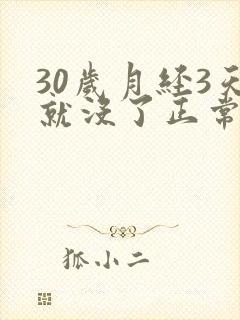 30歲月経3天
就没了正常
狐小二